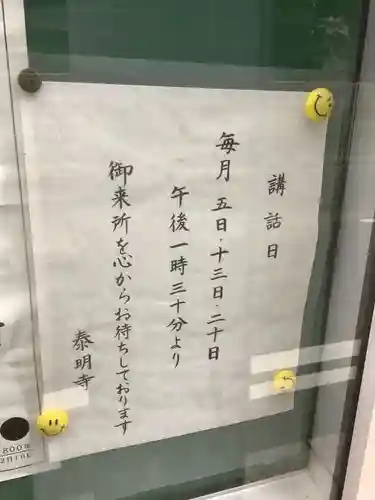 講話日
毎月 五日・十三日・二十日
午後一時三十分より
御来所を心からお待ちしております
泰明寺
800年